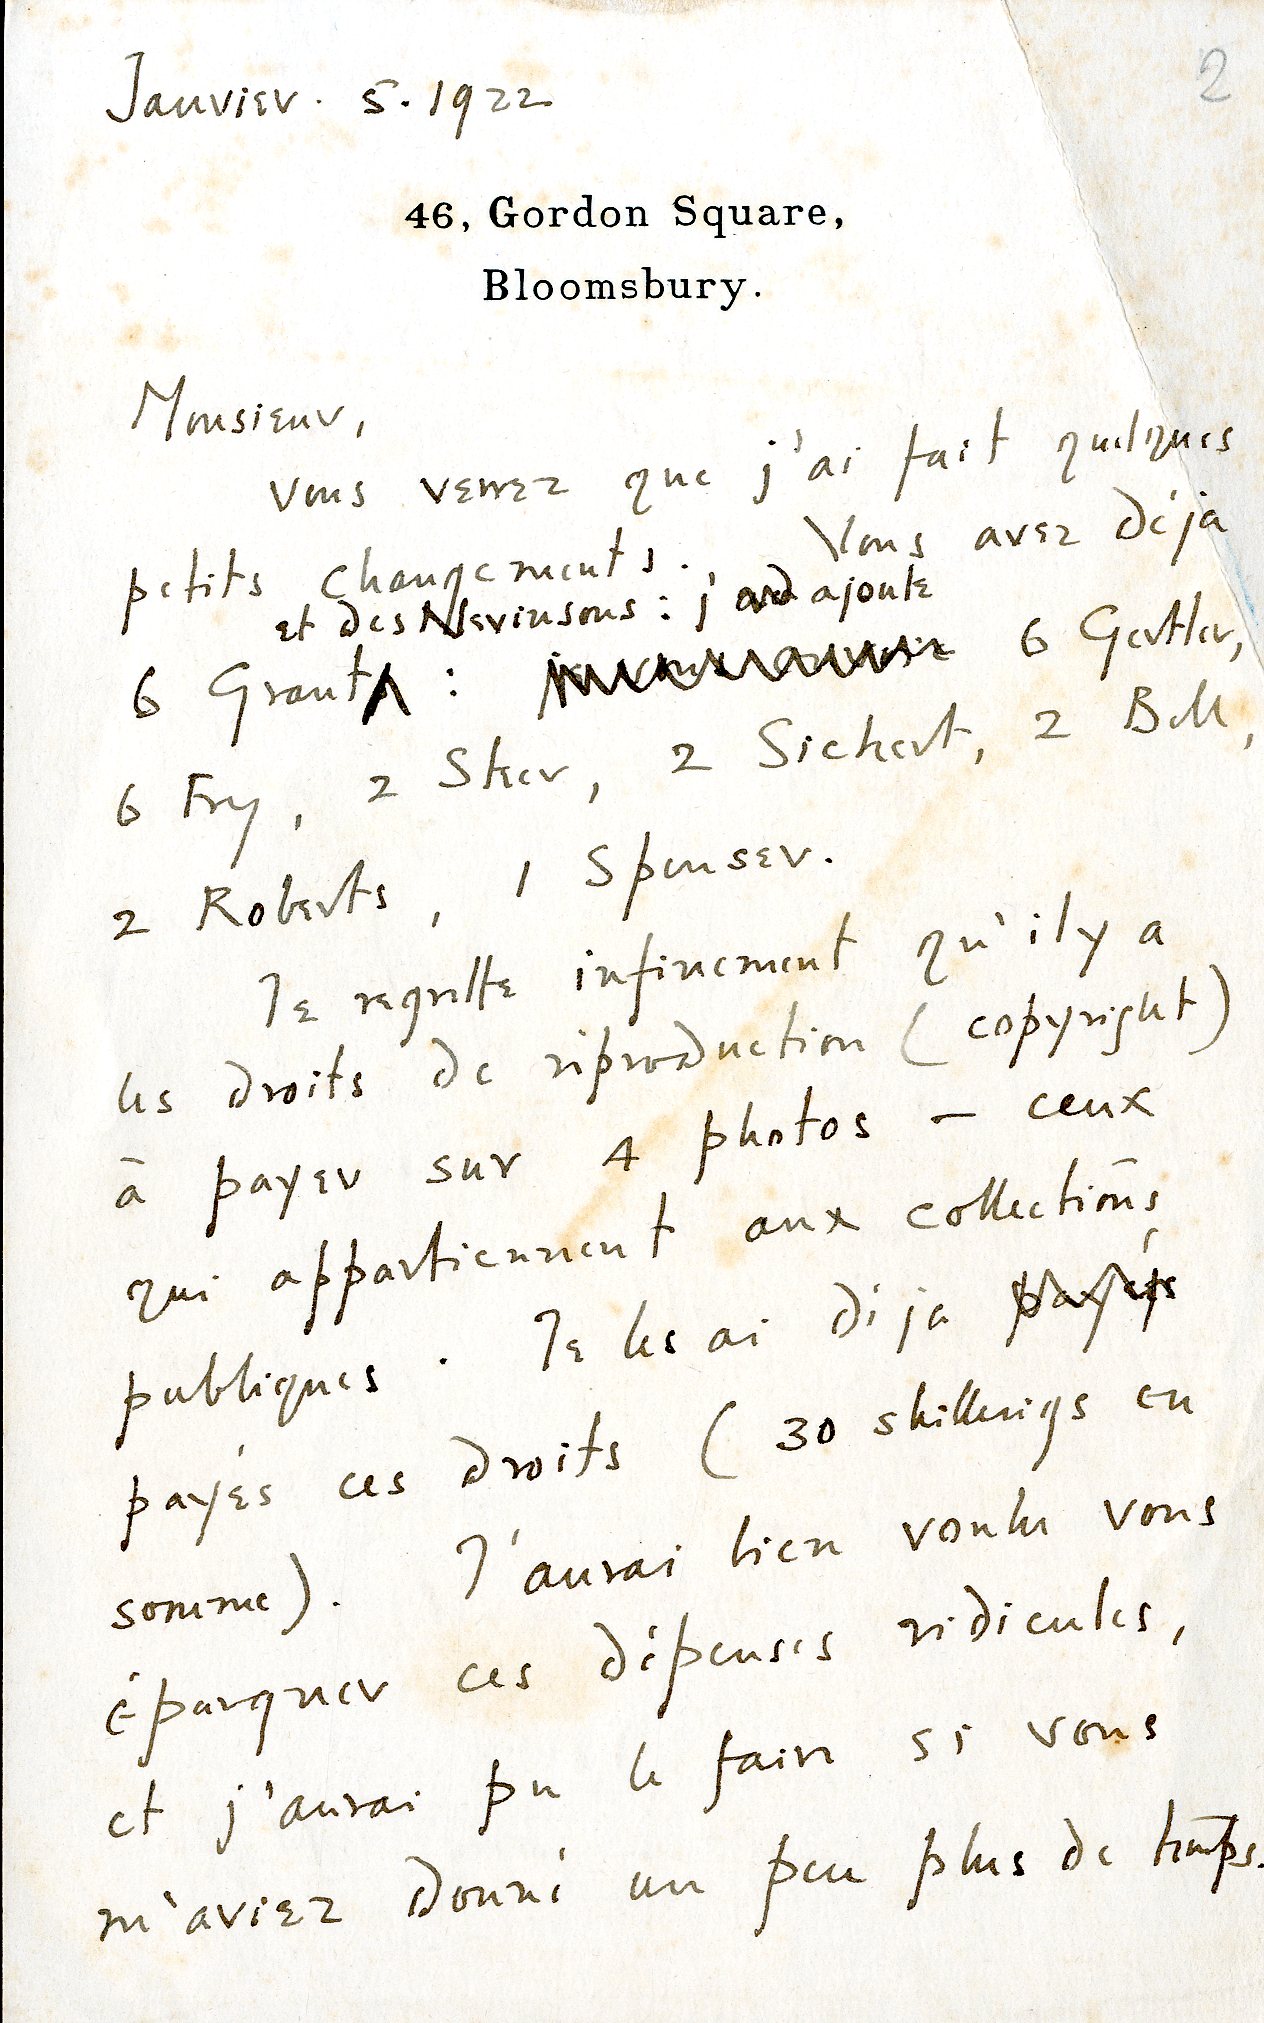 2
Janvier. 5. 1922
46, Gordon Square,
Bloomsbury.
Monsieur,
Vous verrez que j'ai fait quelques
petits changements. Vous avez déja
et des Nevinsons : j'ai ajoute
6 Grant : 6 Gertler,
6 Fry, 2 Steer, 2 Sickert, 2 Bell,
2 Roberts, 1 Spenser.
Je regrette infinement qu'il y a
les droits de reproduction (copyright)
à payer sur 4 photos — ceux
qui appartiennent aux collections
publiques. Je les ai deja payés
payés ces droits (30 shillings en
somme). J'aurai bien voulu vous
épargner ces dépenses ridicules,
et j'aurai pu le faire si vous
m'aviez donné un peu plus de temps.